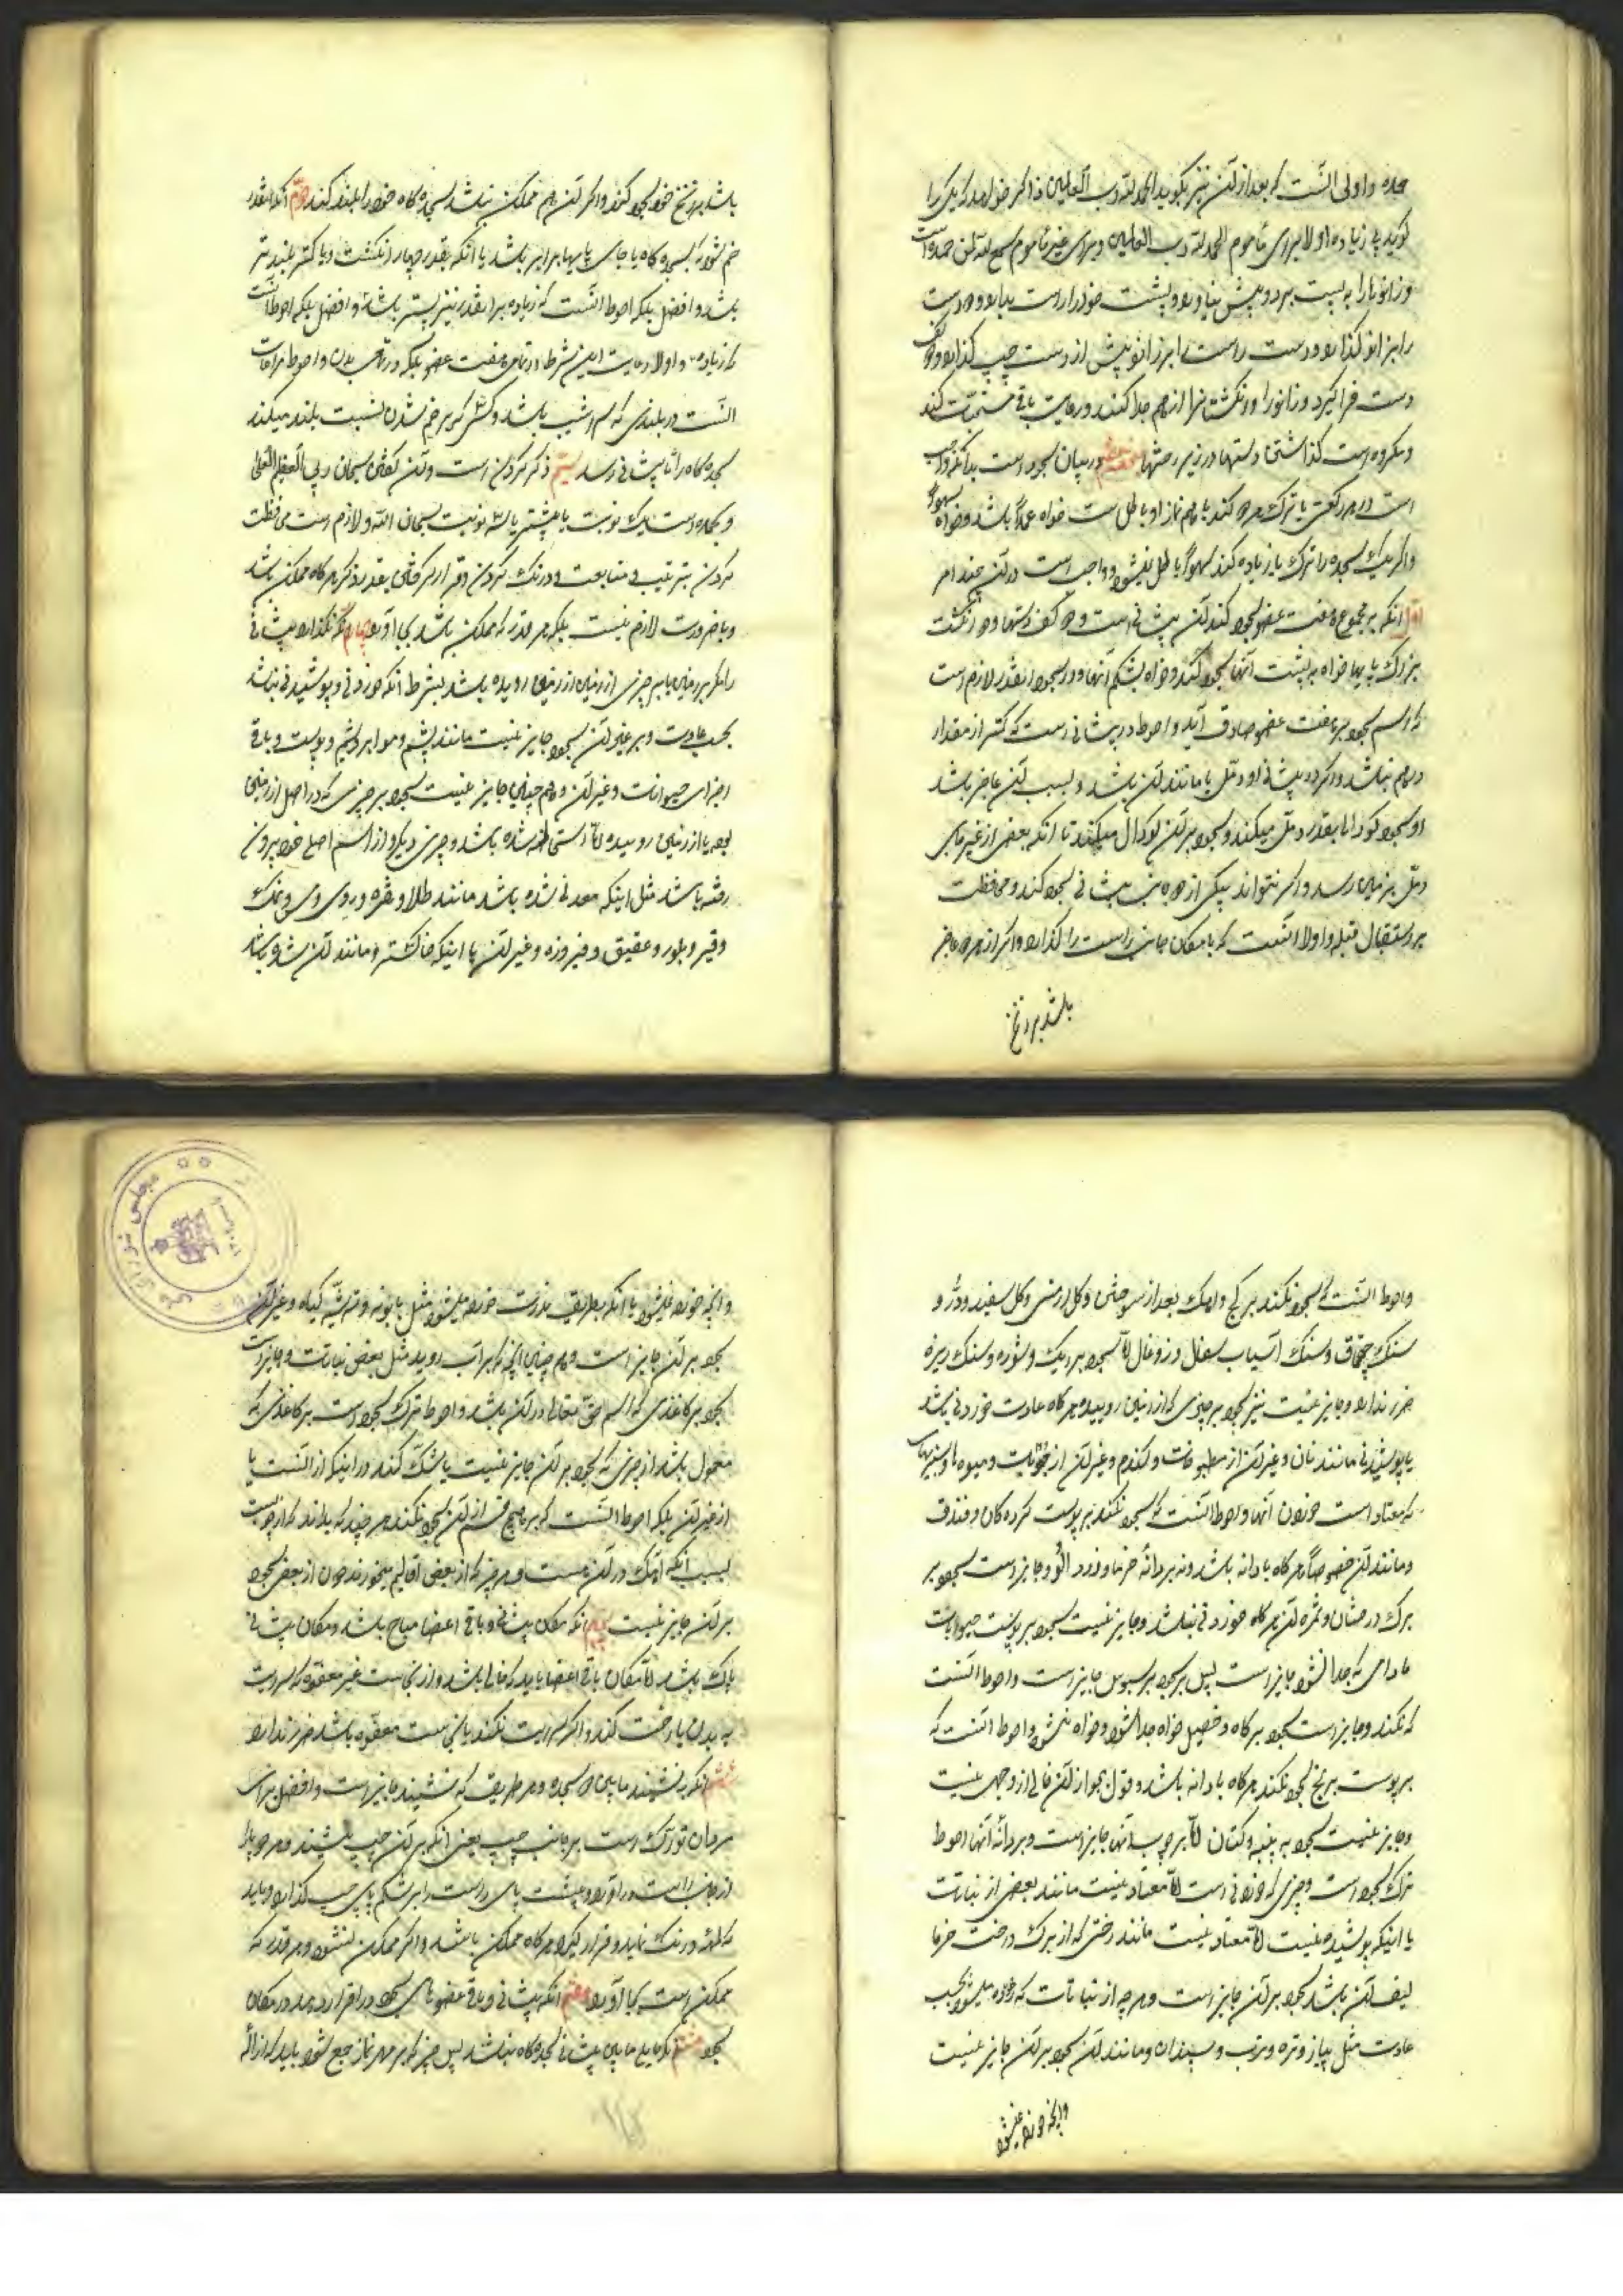 حمده و اولی آنست که بعد از آن نیز بگوید الحمد لله رب العالمین و اگر خواهد که یکی را
گوید پی زیاده اولا برای مأموم الحمد لله رب العالمین و برای غیر مأموم سمع الله لمن حمده است
و زانوها را به پست برد و پیش نیاورد و پشت خود را راست بدارد و دو دست
را بر زانو گذارد و دست راست را بر زانو پیش از دست چپ گذارد و کف
دست فرا گیرد و زانو را و انگشتانرا از هم جدا کند و رعایت باقی مستحبات کند
و مکروه است گذاشتن دستها در زیر رختها در بیان سجود است بدانکه واجب
است در هر رکعتی با ترک هر دو کند با هم نماز او باطل است خواه عمدا باشد و خواه سهوا
و اگر یک سجده را ترک یا زیاده کند سهوا باطل نمیشود و واجب است در آن چند امر
اول آنکه بر مجموع هفت عضو سجود کند و آن پیشانی است و دو کف دستها و دو انگشت
بزرگ پایها خواه بر پشت آنها سجود کند و خواه بشکم آنها و در سجود آنقدر لازم است
که اسم سجود بر هفت عضو صادق آید و احوط در پیشانی است که کمتر از مقدار
درهم نباشد و اگر در پیشانی او دمّلی یا مانند آن باشد و بسبب آن عاجز باشد
از سجود گودالی بقدر دمّل میکند و سجود بر آن گودال میکند تا آنکه بعضی از غیر جای
دمّل بزمین رسد و اگر نتواند بیکی از دو جانب پیشانی سجود کند و محافظت
بر استقبال قبله و اولا آنست که با امکان جانب راست را گذارد و اگر از هر دو عاجز
باشد بر زنخ
باشد بر زنخ خود سجود کند و اگر آن هم ممکن نباشد سجده گاه خود را بلند کند دوّم آنکه آنقدر
خم شود که سجده گاه با جای پایها برابر باشد یا آنکه بقدر چهار انگشت و یا کمتر بلندتر
باشد و افضل بلکه احوط آنست که زیاده بر اینقدر نیز پستر نباشد و افضل بلکه احوط آنست
که زیاده و اولا رعایت این شرط در تمامی هفت عضو بلکه در تمامی بدن و احوط مراعات
آنست در بلندی که سراشیب باشد و کسی که بر خم شدن نسبت بلند میکند
سجده گاه را تا پیشانی رسد سیّم ذکر کردن است و آن گفتن سبحان ربی العظیم الاعلی
و بحمده است یک نوبت یا بیشتر یا سه نوبت سبحان الله و لازم است محافظت
کردن بترتیب و متابعت و درنگ کردن و قرار گرفتن بقدر ذکر هرگاه ممکن باشد
و با ضرورت لازم نیست بلکه هر قدر که ممکن باشد بجا آورد چهارم آنکه نگذارد پیشانی
را مگر بر زمین یا بر چیزی از زمین روییده باشد بشرط آنکه خوردنی و پوشیدنی نباشد
بحسب عادت و بر غیر آن سجود جایز نیست مانند پشم و مو و ابریشم و پوست و باقی
اجزای حیوانات و غیر آن و همچنین جایز نیست سجود بر چیزی که در اصل از زمین
بوده یا از زمین روییده امّا استحاله شده باشد و چیزی دیگر و از اسم اصلی خود بیرون
رفته باشد مثل اینکه معدنی شده باشد مانند طلا و نقره و روی و مس و نمک
و قیر و بلور و عقیق و فیروزه و غیر آن یا اینکه خاکستر و مانند آن شده باشد
و احوط آنست که سجود نکند بر گچ و آهک بعد از سوختن و گل ارمنی و گل سفید و درّ و
سنگ چخماق و سنگ آسیاب سفال و زغال امّا سجود بر ریگ و شوره و سنگ ریزه
ضرر ندارد و جایز نیست نیز سجود بر چیزی که از زمین روییده هرگاه عادت خوردنی باشد
یا پوشیدنی مانند نان و غیر آن از مطبوخات و گندم و غیر آن از حبوبات و میوه ها و سبزیها
که معتاد است خوردن آنها و احوط آنست که سجود نکند بر پوست گردکان و فندق
و مانند آن خصوصا هرگاه با دانه باشد و نه بر دانه خرما و زرد آلو و جایز است سجود بر
برگ درختان و ثمره آن هرگاه خوردنی نباشد و جایز نیست سجود بر پوست حبوبات
مادامی که جدا نشود جایز است پس بر سجود بر سبوس جایز است و احوط آنست
که نکند و جایز است سجود بر کاه و خصیل خواه جدا شود و خواه نشود و احوط آنست که
بر پوست برنج سجود نکند هرگاه با دانه باشد و قول بجواز آن خالی از وجهی نیست
و جایز نیست سجود بر پنبه و کتان امّا بر چوب آنها جایز است و بر دانه آنها احوط
ترک سجود است و چیزی که خوردنی است امّا معتاد نیست مانند بعضی از نباتات
یا اینکه پوشیدنیست امّا معتاد نیست مانند رختی که از برگ درخت خرما
لیف آن باشد سجود بر آن جایز است و هر چه از نباتات که خورده میشود بحسب
عادت مثل پیاز و تره و ترب و سپندان و مانند آن سجود بر آن جایز نیست
و آنچه خورده نمیشود
و آنچه خورده نمیشود یا آنکه بطریق ندرت خورده میشود مثل بابونه و گیاه و غیر آن
سجود بر آن جایز است و همچنین آنچه که بر آب روید مثل بعضی نباتات و جایز است
سجود بر کاغذی که اسم حق تعالی در آن باشد و احوط ترک سجود است بر کاغذی که
معمول باشد از چیزی که سجود بر آن جایز نیست یا شک کند در اینکه از آنست یا
از غیر آن بلکه احوط آنست که بر هیچ قسم از آن سجود نکند هر چند که بداند که از چوبست
بسبب آنکه آهک در آن هست و هر چیز که از بعضی اقالیم میخورند دون از بعضی سجود
بر آن جایز نیست پنجم آنکه مکان پیشانی و باقی اعضا مباح باشد و مکان پیشانی
پاک باشد امّا مکان باقی اعضا باید که خالی باشد از نجاست غیر معفوه که سرایت
به بدن یا رخت کند و اگر سرایت نکند یا نجاست معفوه باشد ضرر ندارد
ششم آنکه بنشیند مابین دو سجده و هر طریق که نشیند جایز است و افضل برای
مردان تورّک است بر جانب چپ یعنی آنکه بر ران چپ نشیند و هر دو پا را
از جانب راست در آورد و پشت پای راست را بر شکم پای چپ گذارد و باید
که درنگ نماید و قرار گیرد هرگاه ممکن باشد و اگر ممکن نشود هر قدر که
ممکن است بجا آورد هفتم آنکه پیشانی و باقی عضوهای سجود را قرار دهد در مکان
سجود هشتم آنکه مانع مابین پیشانی سجده گاه نباشد پس چیز که بر مهر نماز جمع شود باید که ازاله